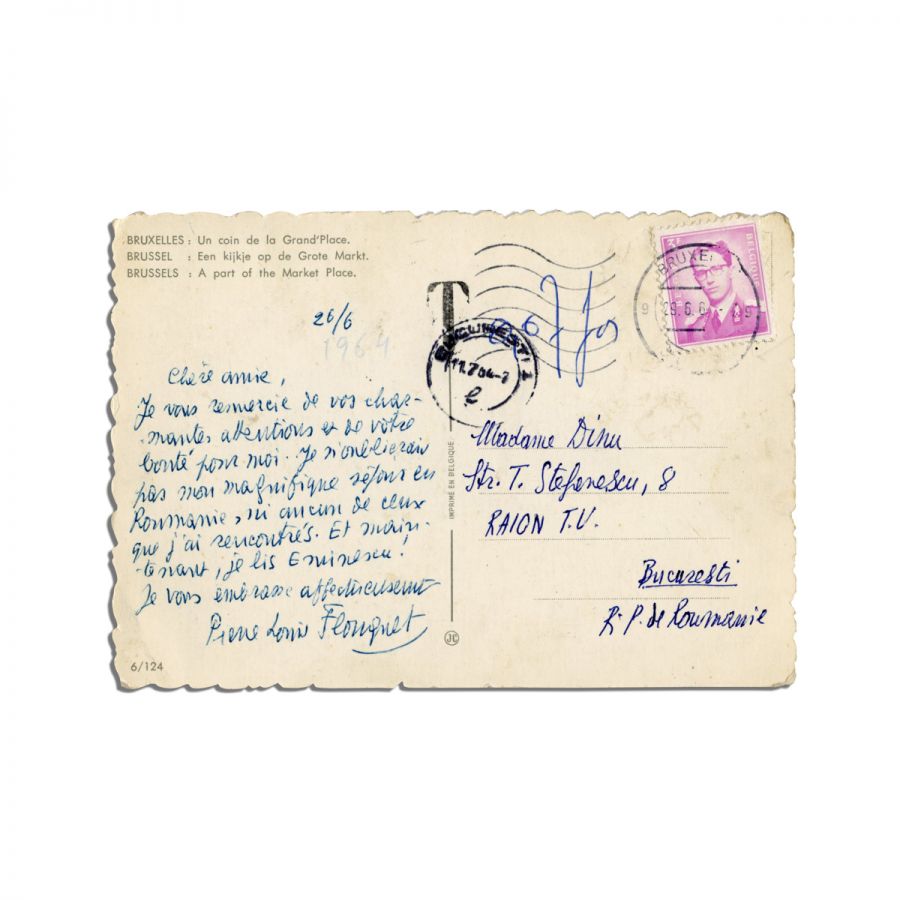 BRUXELLES : Un coin de la Grand'Place.
BRUSSEL : Een kijkje op de Grote Markt.
BRUSSELS : A part of the Market Place.
26/6
1964
Chère amie,
Je vous remercie de vos char-
mantes attentions et de votre
bonté pour moi. Je n'oublierai
pas mon magnifique séjour en
Roumanie, ni aucun de ceux
que j'ai rencontrés. Et main-
tenant, je lis Eminescu!
Je vous embrasse affectueusement
Pierre Louis Flouquet
6/124
IMPRIMÉ EN BELGIQUE
JC
T
BUCURESTI 1
11.7.64-7
BRUXEL
29.6.6
BELGIQUE
Madame Dinu
Str. T. Stefanescu, 8
RAION T.V.
Bucuresti
R.P. de Roumanie